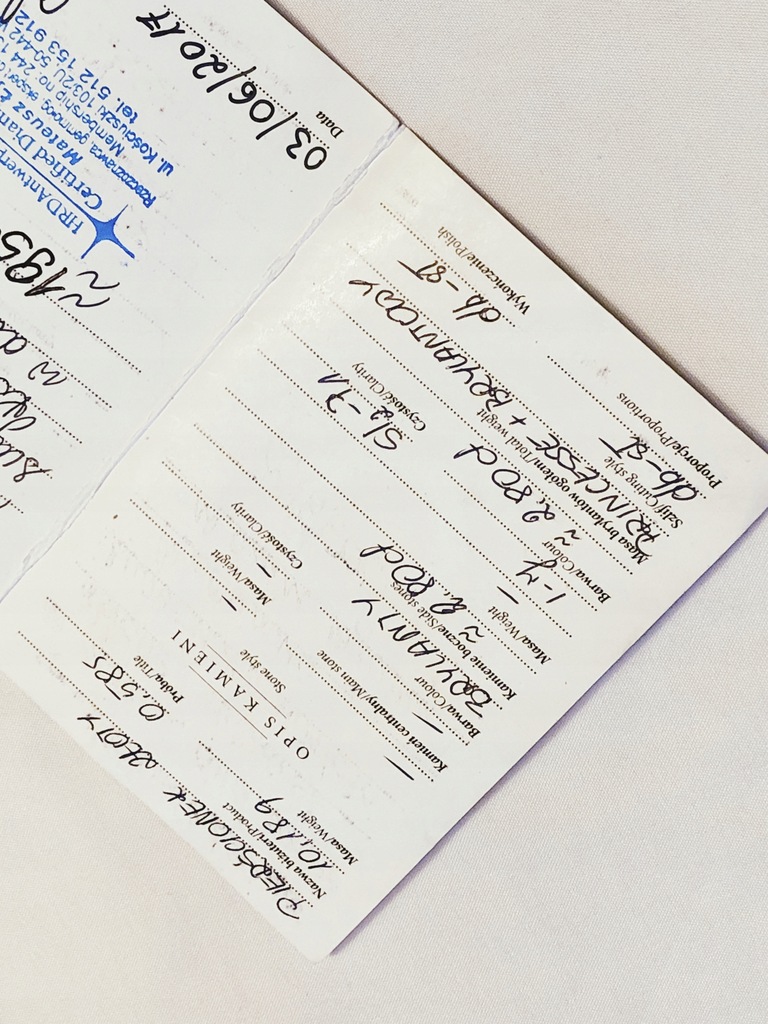 PIERŚCIONEK ZŁOTY
Nazwa biżuterii/Product
10,18g 0,585
Masa/Weight Próba/Title
OPIS KAMIENI
Stone style
—
Kamień centralny/Main stone
— — —
Barwa/Colour Masa/Weight Czystość/Clarity
BRYLANTY
Kamienie boczne/Side stones
≈ 2,80ct
Masa/Weight
I-J SI2-P1
Barwa/Colour Czystość/Clarity
≈ 2,80ct
Masa brylantów ogółem/Total weight
PRINCESSE + BRYLANTOWY
Szlif/Cutting style
db-st db-st
Proporcje/Proportions Wykończenie/Polish
≈195
03/06/2017
Data
HRD Antwerp
Certified Diam
Mateusz
Rzeczoznawca, gemmolog, ekspert
Membership no: 244
ul. Kościuszki 103/2U, 50-442
tel. 512 153 912